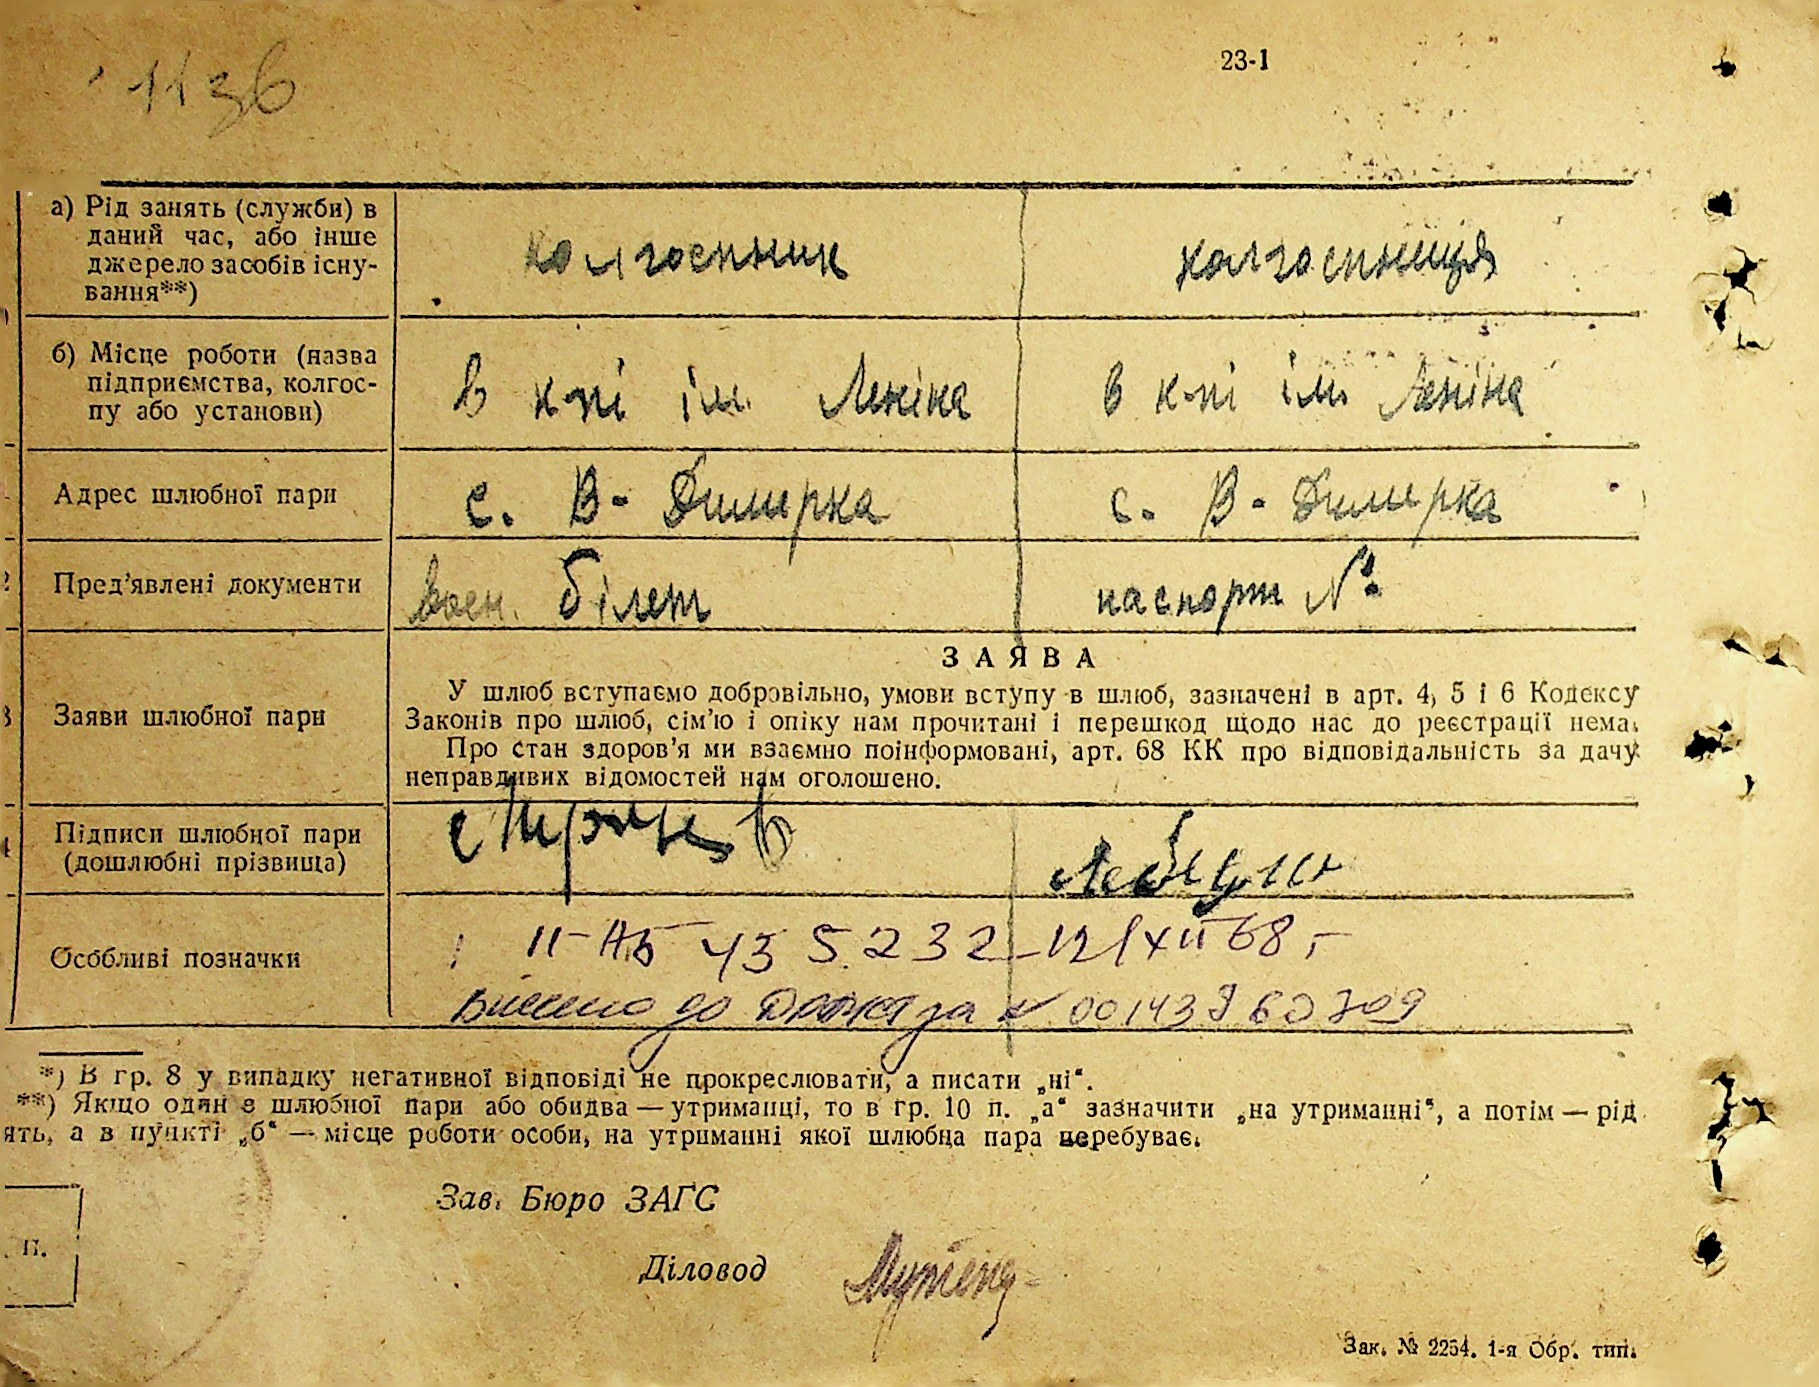 1136
23-1
а) Рід занять (служби) в
даний час, або інше
джерело засобів існу-
вання**)
колгоспник
колгоспниця
б) Місце роботи (назва
підприємства, колгос-
пу або установи)
в к-пі ім. Леніна
в к-пі ім. Леніна
Адрес шлюбної пари
с. В-Димерка
с. В-Димерка
Пред'явлені документи
воен. білет
паспорт №
Заяви шлюбної пари
ЗАЯВА
У шлюб вступаємо добровільно, умови вступу в шлюб, зазначені в арт. 4, 5 і 6 Кодексу
Законів про шлюб, сім'ю і опіку нам прочитані і перешкод щодо нас до реєстрації нема.
Про стан здоров'я ми взаємно поінформовані, арт. 68 КК про відповідальність за дачу
неправдивих відомостей нам оголошено.
Підписи шлюбної пари
(дошлюбні прізвища)
Особливі позначки
II-АБ 435232 12/XII 68 г
Внесено до за № 00143960709
*) В гр. 8 у випадку негативної відповіді не прокреслювати, а писати „ні“.
**) Якщо один з шлюбної пари або обидва — утриманці, то в гр. 10 п. „а“ зазначити „на утриманні“, а потім — рід
ять, а в пункті „б“ — місце роботи особи, на утриманні якої шлюбна пара перебуває.
Зав. Бюро ЗАГС
п.
Діловод
Зак. № 2254. 1-я Обр. тип.